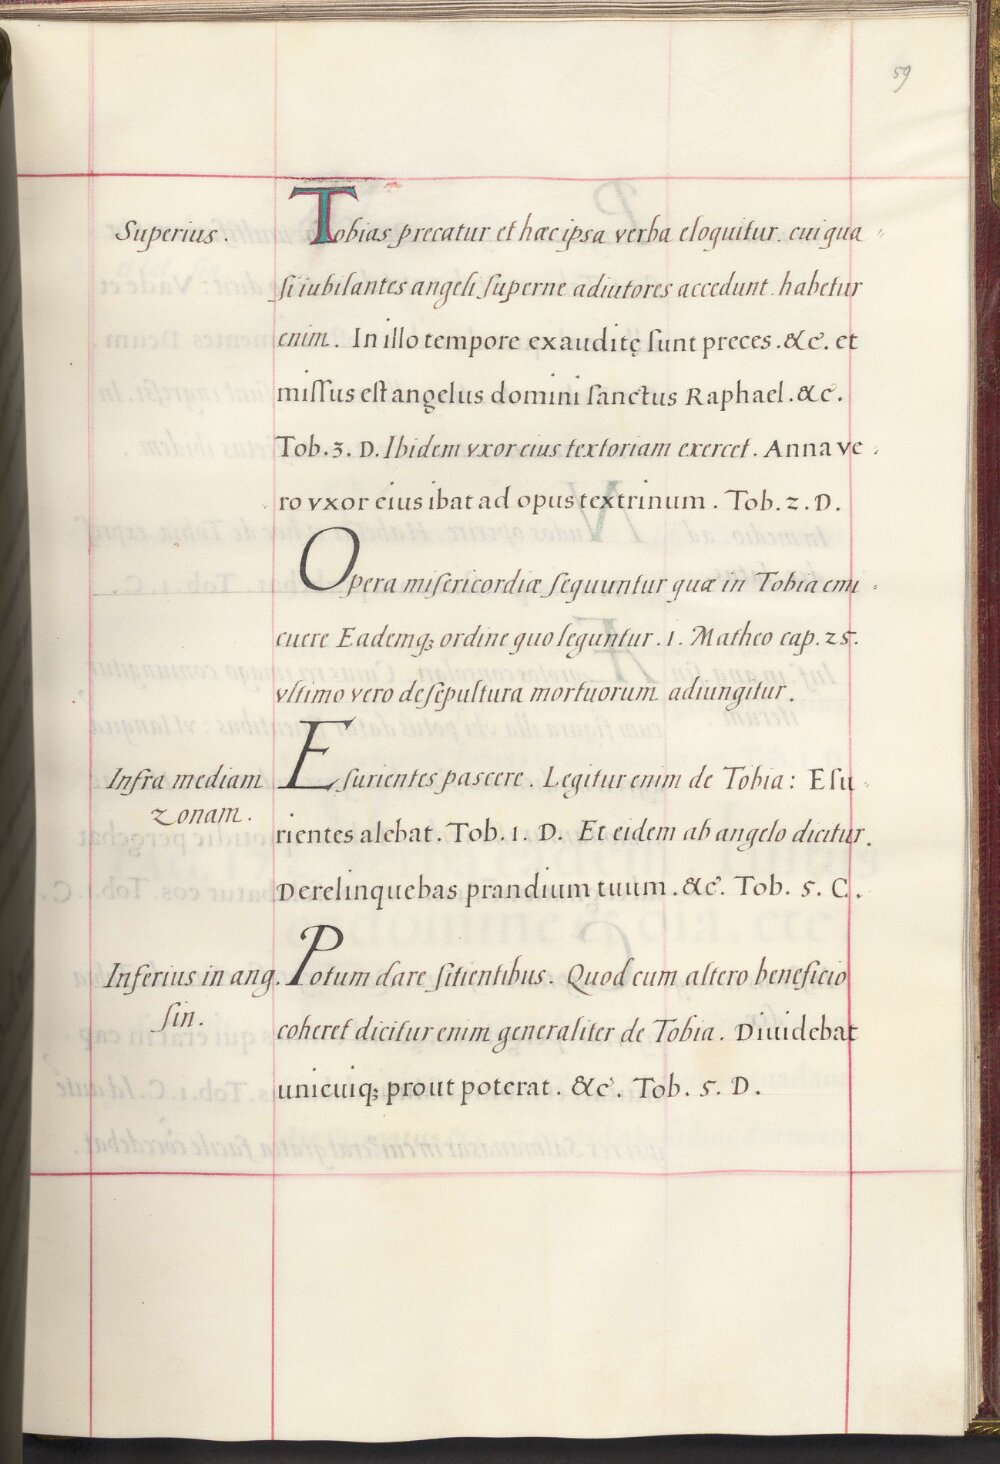 59
Superius. Tobias precatur et hæc ipsa verba eloquitur. cui qua-
ſi iubilantes angeli ſuperne adiutores accedunt. habetur
enim. In illo tempore exauditę ſunt preces. &c. et
miſſus eſt angelus domini ſanctus Raphael. &c.
Tob. 3. D. Ibidem vxor eius textoriam exercet. Anna ve-
ro vxor eius ibat ad opus textrinum. Tob. 2. D.
Opera miſericordiæ ſequuntur quæ in Tobia emi-
cuere Eademq; ordine quo leguntur. 1. Matheo cap. 25.
vltimo vero de ſepultura mortuorum adiungitur.
Infra mediam Eſurientes pascere. Legitur enim de Tobia: Eſu-
zonam. rientes alebat. Tob. 1. D. Et eidem ab angelo dicitur.
Derelinquebas prandium tuum. &c. Tob. 5. C.
Inferius in ang. Potum dare ſitientibus. Quod cum altero beneficio
ſin. coheret dicitur enim generaliter de Tobia. Diuidebat
unicuiq; prout poterat. &c. Tob. 5. D.